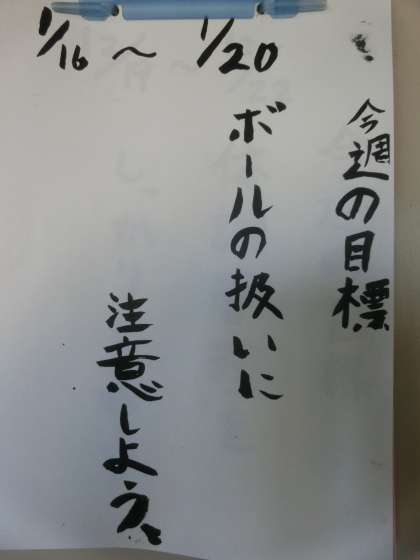 1/16～1/20
今週の目標
ボールの扱いに
注意しよう。